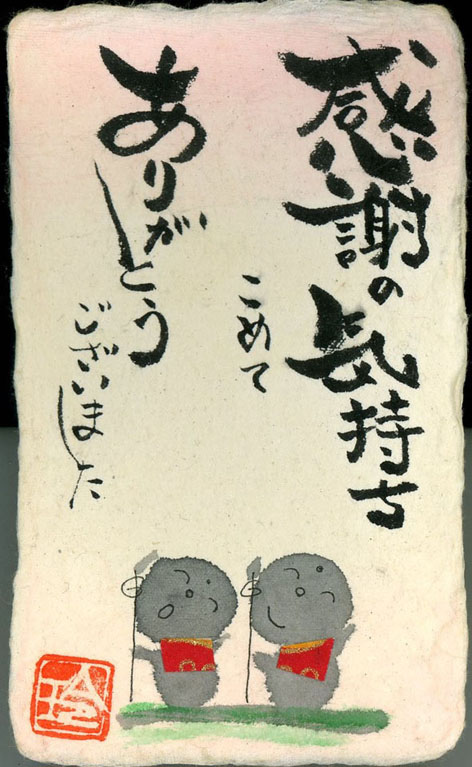 感謝の気持ち
こめて
ありがとう
ございました